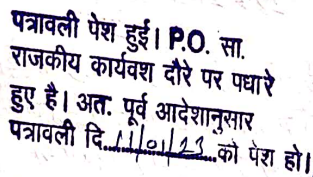 पत्रावली पेश हुई। P.O. सा.
राजकीय कार्यवश दौरे पर पधारे
हुए है। अतः पूर्व आदेशानुसार
पत्रावली दि...11/01/23...को पेश हो।